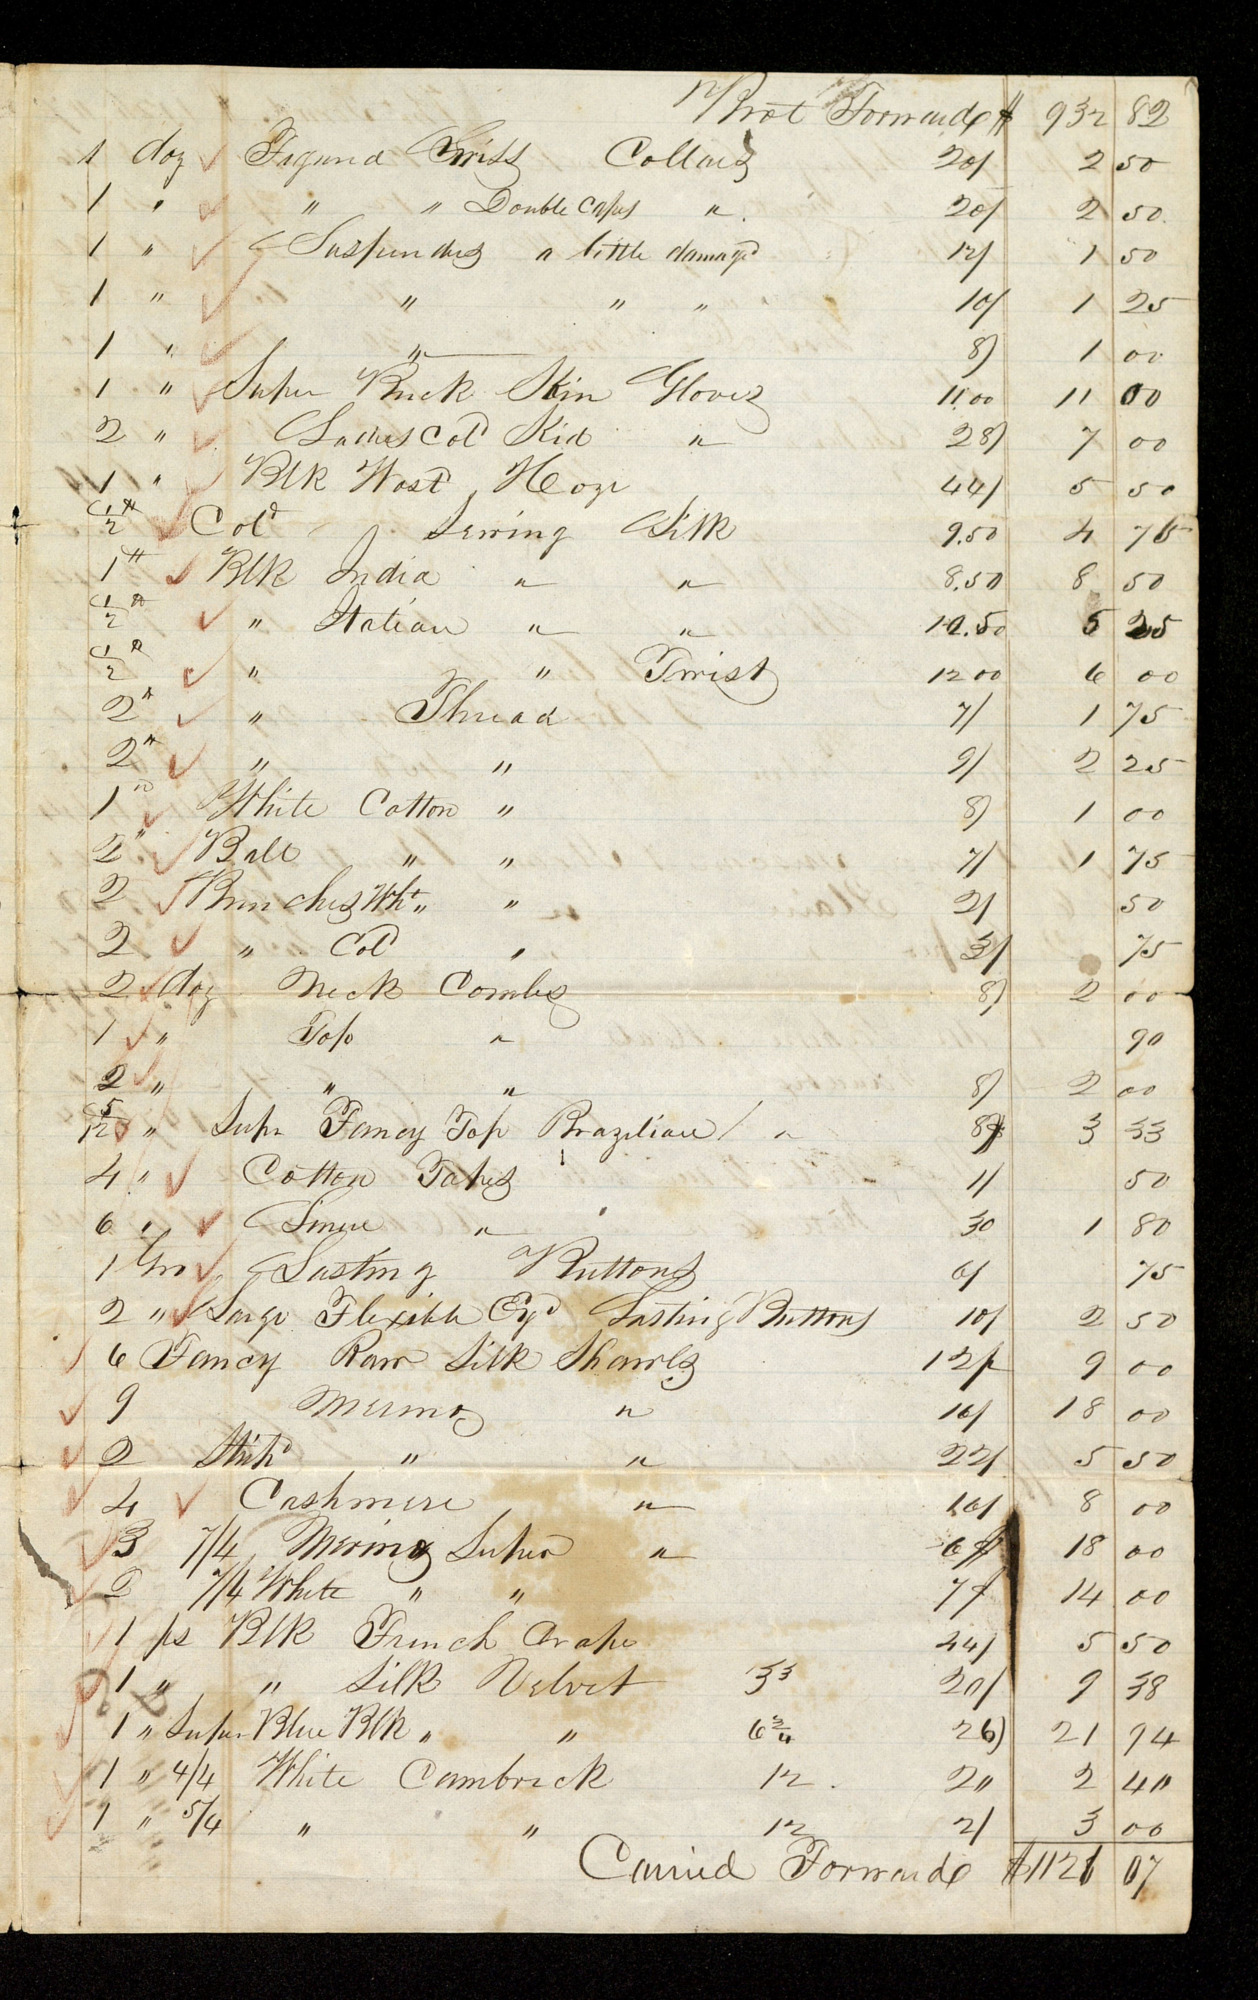 Brot Forward $ 932 82
1 doz Figured Swiss Collars 20/ 2 50
1 " " " Double capes " 20/ 2 50
1 " Suspenders a little damagd 12/ 1 50
1 " " " " 10/ 1 25
1 " " 8/ 1 00
1 " Super Buck Skin Gloves 11.00 11 00
2 " Ladies Cold Kid " 28/ 7 00
1 " Blk Wost Hoze 44/ 5 50
1/2 # Cold Sewing Silk 9.50 4 75
1 # Blk India " " 8.50 8 50
1/2 # " Italian " " 10.50 5 25
1/2 # " " Twist 12 00 6 00
2 # " Thread 7/ 1 75
2 # " " 9/ 2 25
1 " White Cotton " 8/ 1 00
2 " Ball " " 7/ 1 75
2 Bunches Wht " " 2/ 50
2 " Cold " 3/ 75
2 doz Neck Combs 8/ 2 00
1 " Top " 90
2 " " " 8/ 2 00
5/12 " Supr Fancy Top Brazilian " 8$ 3 33
4 " Cotton Tapes 1/ 50
6 " Linen " 30 1 80
1 Gro Lasting Buttons 6/ 75
2 " Large Flexible Eyd Lasting Buttons 10/ 2 50
6 Fancy Raw Silk Shawls 12/ 9 00
9 Merino " 16/ 18 00
2 Strip " " 22/ 5 50
4 Cashmere " 16/ 8 00
3 7/4 Merino Super " 6$ 18 00
2 7/4 White " " 7$ 14 00
1 ps Blk French Crape 44/ 5 50
1 " " Silk Velvet 3 3 20/ 9 38
1 " Super Blue Blk " " 6 3/4 26/ 21 94
1 " 4/4 White Cambrick 12 20 2 40
1 " 5/4 " " 12 2/ 3 00
Carried Forward $1121 07